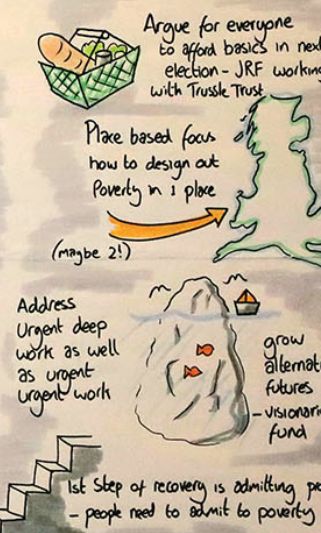 Argue for everyone
to afford basics in next
election - JRF working
with Trussle Trust
Place based focus
how to design out
Poverty in 1 place
(maybe 2!)
Address
Urgent deep
work as well
as urgent
urgent work
grow
alternat
futures
- visionari
fund
1st Step of recovery is admitting pr
- people need to admit to poverty